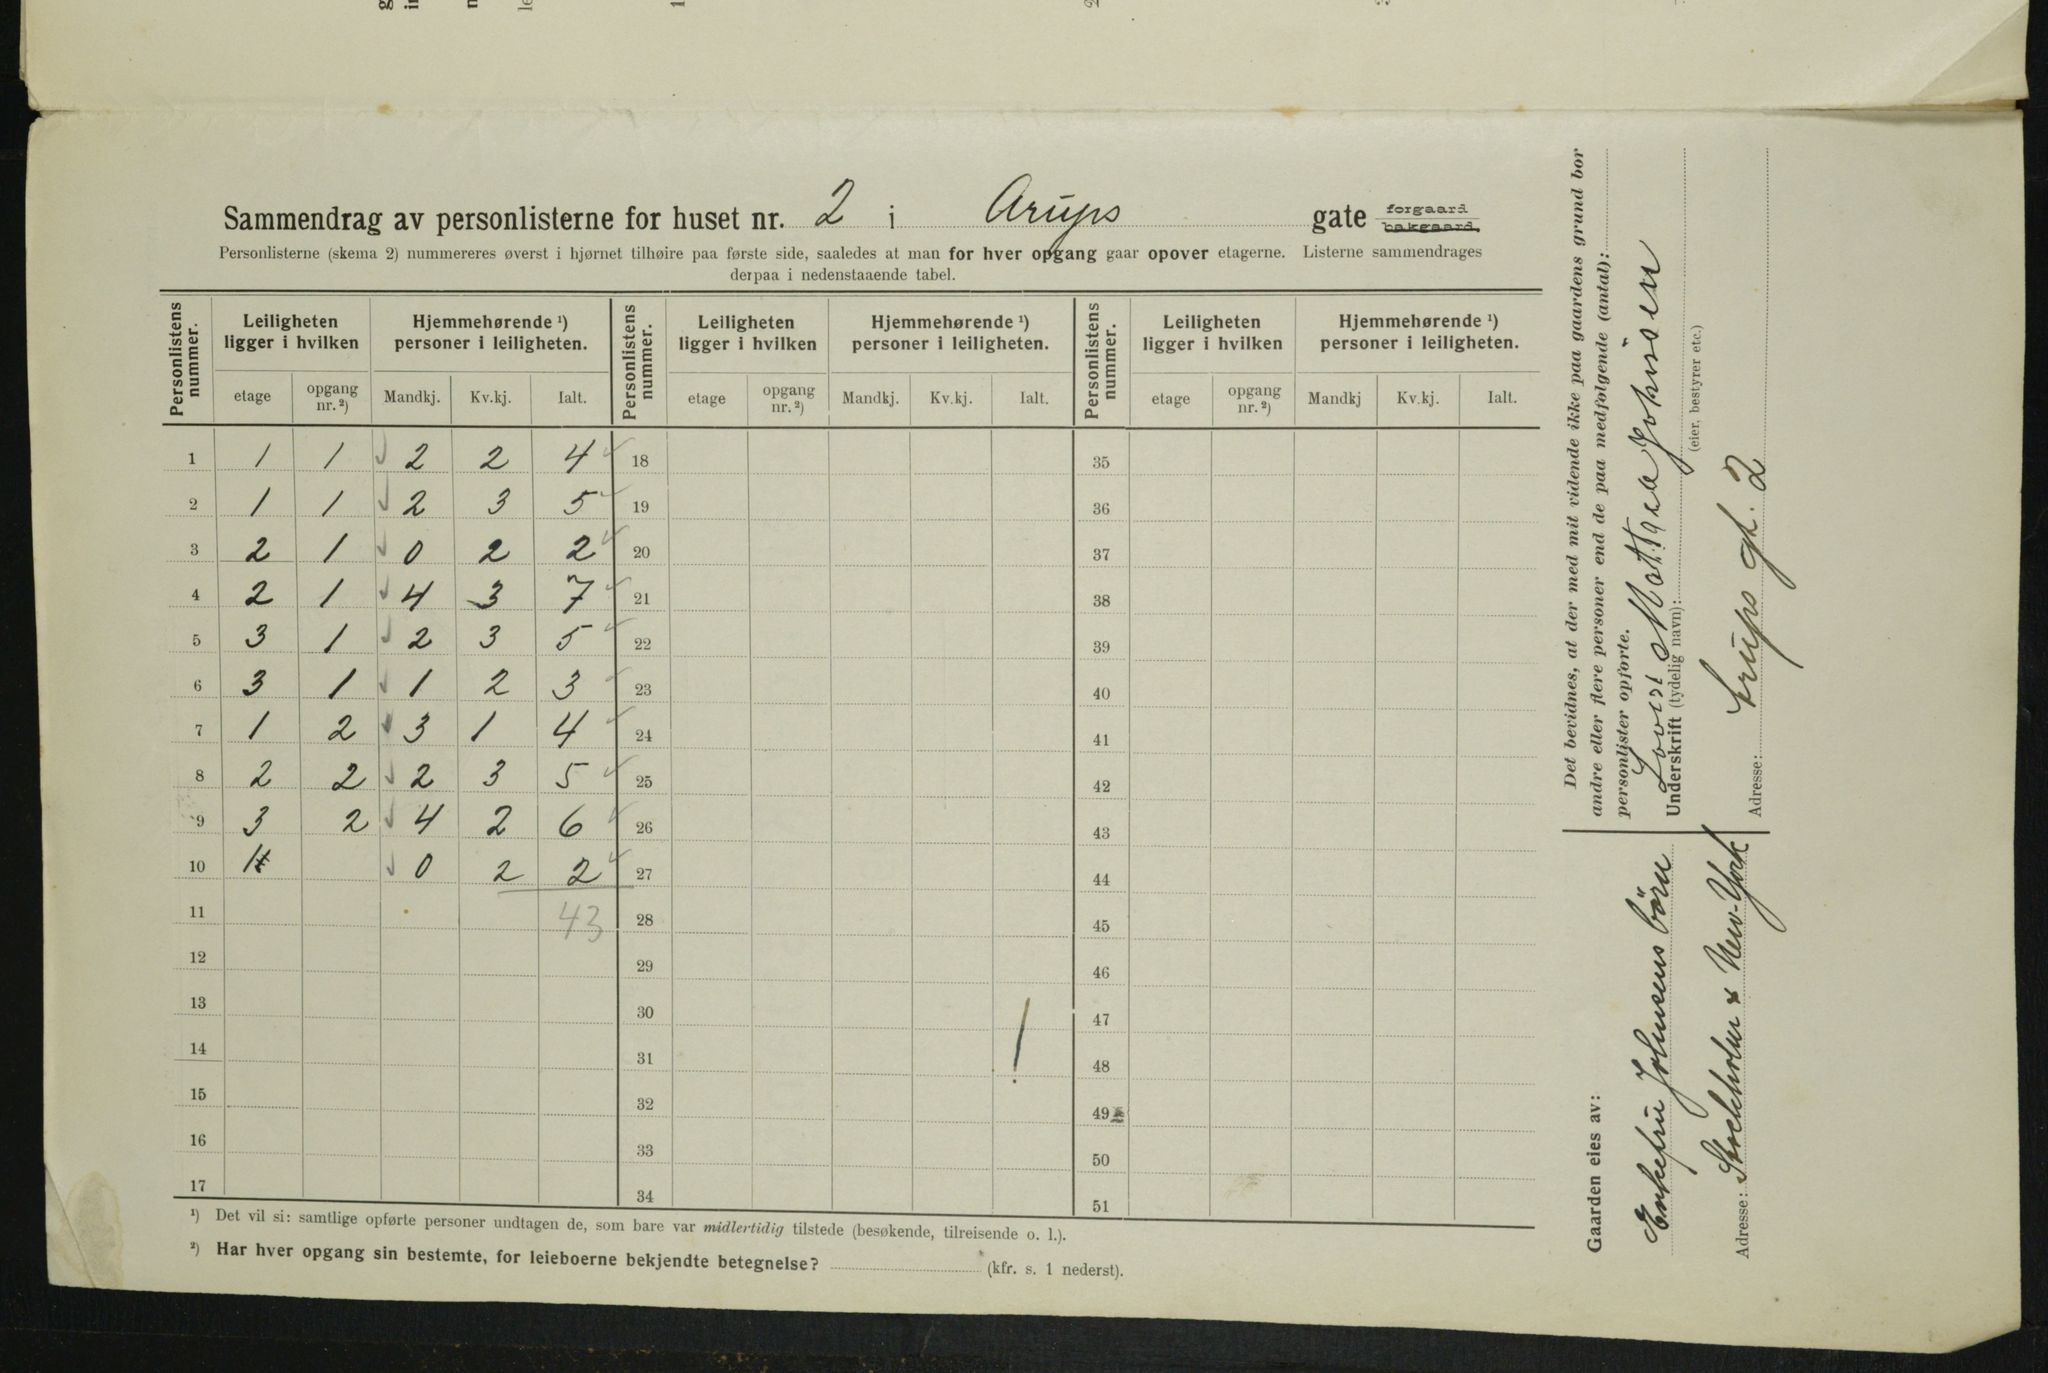 Sammendrag av personlisterne for huset nr. 2 i Arups gate forgaard bakgaard.
Personlisterne (skema 2) nummereres øverst i hjørnet tilhøire paa første side, saaledes at man for hver opgang gaar opover etagerne. Listerne sammendrages
derpaa i nedenstaaende tabel.
Personlistens nummer. Leiligheten ligger i hvilken Hjemmehørende ¹) personer i leiligheten. Personlistens nummer. Leiligheten ligger i hvilken Hjemmehørende ¹) personer i leiligheten. Personlistens nummer. Leiligheten ligger i hvilken Hjemmehørende ¹) personer i leiligheten.
etage opgang nr. ²) Mandkj. Kv.kj. Ialt. etage opgang nr. ²) Mandkj. Kv.kj. Ialt. etage opgang nr. ²) Mandkj Kv.kj. Ialt.
1 1 1 2 2 4 18 35
2 1 1 2 3 5 19 36
3 2 1 0 2 2 20 37
4 2 1 4 3 7 21 38
5 3 1 2 3 5 22 39
6 3 1 1 2 3 23 40
7 1 2 3 1 4 24 41
8 2 2 2 3 5 25 42
9 3 2 4 2 6 26 43
10 0 2 2 27 44
11 43 28 45
12 29 46
13 30 47
14 31 48
15 32 49
16 33 50
17 34 51
¹) Det vil si: samtlige opførte personer undtagen de, som bare var midlertidig tilstede (besøkende, tilreisende o. l.).
²) Har hver opgang sin bestemte, for leieboerne bekjendte betegnelse? (kfr. s. 1 nederst).
Det bevidnes, at der med mit vidende ikke paa gaardens grund bor
andre eller flere personer end de paa medfølgende (antal):
personlister opførte.
Lovise Mathea Johnsen
Underskrift (tydelig navn):
(eier, bestyrer etc.)
Adresse: Arups gt. 2
Gaarden eies av:
Enkefru Johnsens börn
Adresse: Stockholm & New-York